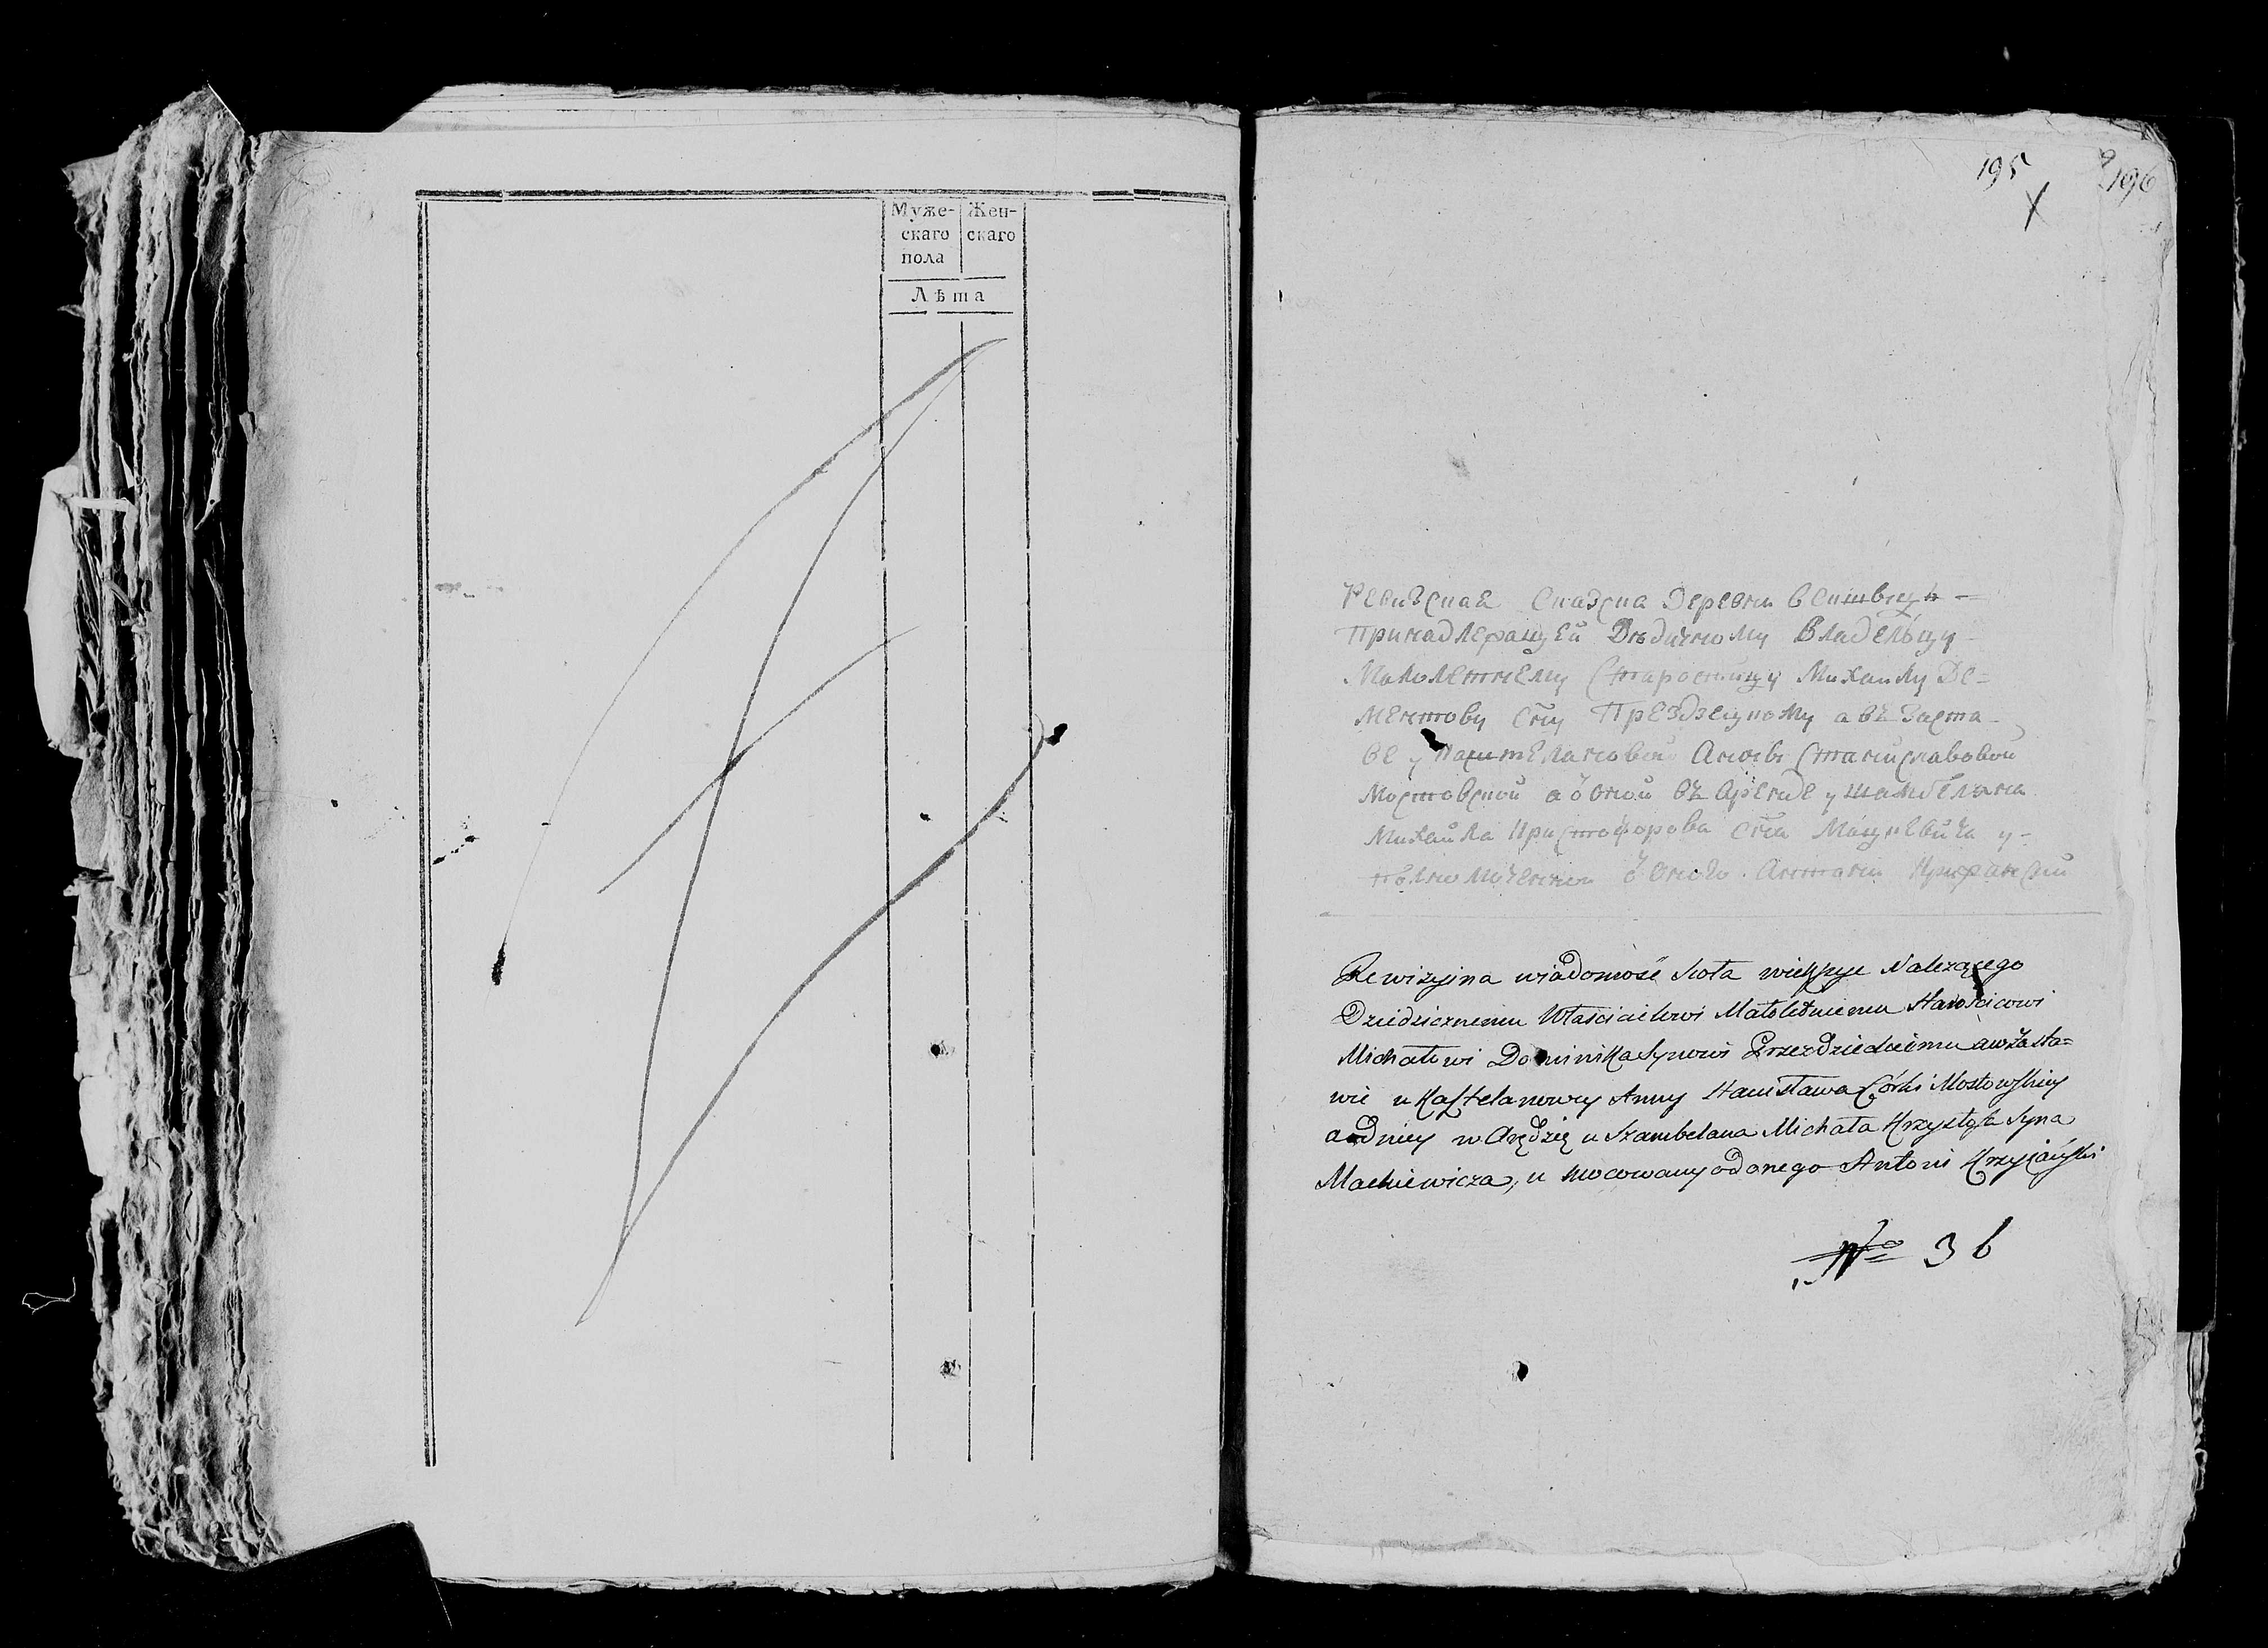 Муже- Жен-
скаго скаго
пола
Лѣта
195 196
Ревизская Сказска Деревни
Принадлежащей Дѣдичному Владельцу
Малолетнему Старостицу Михаилу До=
ментову Сну Прездзецкому а въ Заста-
ве у Каштелановой Анны Станиславовой
Мостовской а о оной въ Аренде у Шамбеляна
Михайла Кристофорова Сна Мацкевича у-
полномоченной о оного Антони
Rewizyina wiadomość Sioła Należącego
Dziedzicznemu Właścicielowi Małoletniemu Starościcowi
Michałowi Dominika Synowi Przezdzieckiemu a w Zasta=
wie u Kasztelanowey Anny Stanisława Córki Mostowskiey
a od niey w Arędzie u Szambelana Michała Krzysztofa Syna
Mackiewicza, u mocowany od onego Antoni
№ 36